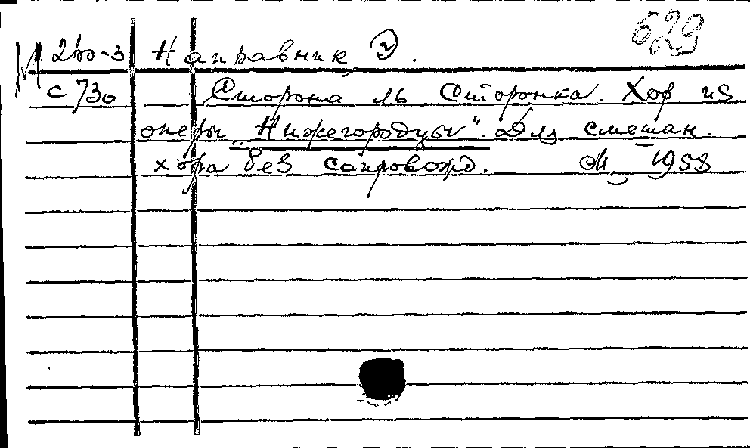 629
М 2во-3 Направник Э.
С 730 Сторона ль Сторонка. Хор из
оперы "Нижегородцы". Для смешан.
хора без сопровожд. М. 1958